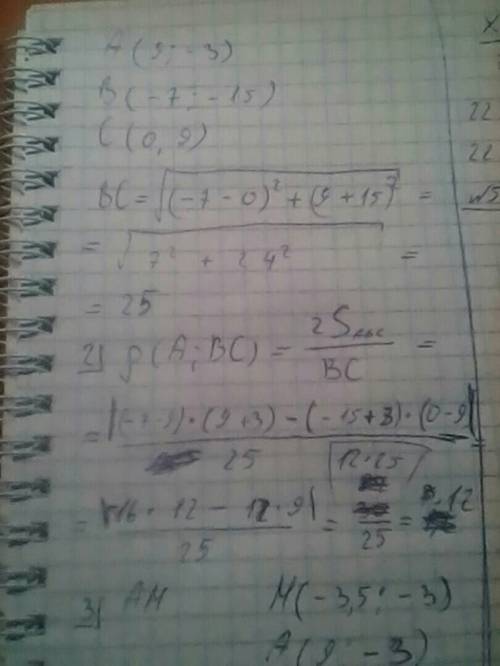 A (9; -3)
B (-7; -15)
C (0, 9)
BC = √((-7-0)² + (9+15)²) =
= √(7² + 24²) =
= 25
2) ρ(A; BC) = 2S_ABC / BC =
= |(-7-9)·(9+3) - (-15+3)·(0-9)| / 25 =
12·25
= |-16·12 - 12·9| / 25 = /25 = 12
3) AM M(-3,5; -3)
A(9; -3)
X
22
22
№5